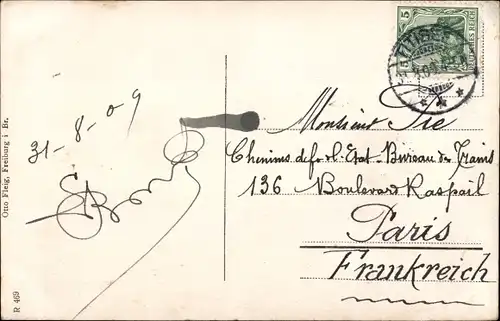 5
DEUTSCHES REICH
31-8-09
Monsieur Pie
Chemins de fer de l'Etat - Bureau des Trains
136 Boulevard Raspail
Paris
Frankreich
Otto Fleig, Freiburg i. Br.
R 469